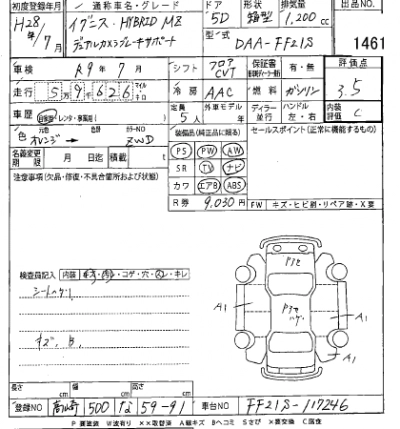 初度登録年月 通称車名・グレード ドア 形状 排気量 出品NO.
H28年7月 イグニス・HYBRID MZ 5D 箱型 1,200cc
デュアルカメラブレーキサポート 型式 DAA-FF21S 1461
車検 R9年7月 シフト フロア CVT 保証書 有・無 評価点
走行 5万9千626 マイル・キロ 冷房 AAC 燃料 ガソリン 3.5
車歴 自家用・レンタ・事業用 定員 5人 外車モデル 年 ディーラー 並行 ハンドル 左・右 内装評価 C
色 元色 オレンジ → 色替 カラーNO ZWD 装備品(純正品に限る) セールスポイント(正常に機能するもの)
名義変更期限 月 日迄 積載 t PS PW AW
注意事項(欠品・修復・不具合箇所および状態) SR TV ナビ
カワ エアB ABS
R券 9,030円 FW キズ・ヒビ割・リペア跡・X要
検査員記入 内装 ・コゲ・穴・ ・キレ
A1
A1
A1
長さ cm 幅 cm 高さ cm
登録NO 500 な 59-91 車台NO FF21S-117246
P 要塗装 W波有り ××取替済 A線キズ Bヘコミ Sさび ×要交換 C腐食